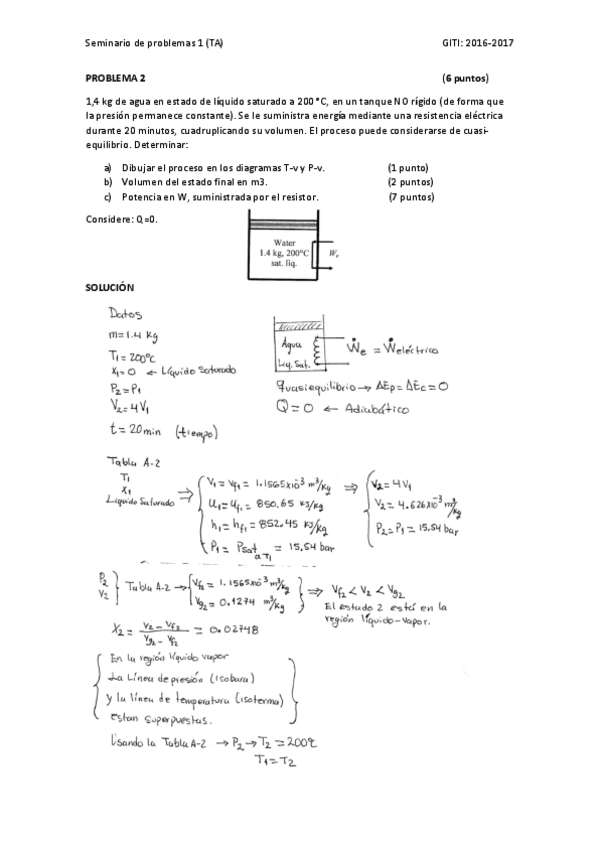 Seminario de problemas 1 (TA) GITI: 2016-2017
PROBLEMA 2 (6 puntos)
1,4 kg de agua en estado de líquido saturado a 200°C, en un tanque NO rígido (de forma que
la presión permanece constante). Se le suministra energía mediante una resistencia eléctrica
durante 20 minutos, cuadruplicando su volumen. El proceso puede considerarse de cuasi-
equilibrio. Determinar:
a) Dibujar el proceso en los diagramas T-v y P-v. (1 punto)
b) Volumen del estado final en m3. (2 puntos)
c) Potencia en W, suministrada por el resistor. (7 puntos)
Considere: Q=0.
Water
1.4 kg, 200°C
sat. liq.
We
SOLUCIÓN
Datos
m=1.4 Kg
T1=200°C
X1=0 ← Líquido Saturado
P2=P1
V2=4V1
t=20min (tiempo)
Agua
Liq. Sat.
Ẇe = Ẇeléctrico
quasiequilibrio → ΔEp=ΔEc=0
Q=0 ← Adiabático
Tabla A-2
T1
X1
Líquido Saturado ⇒
V1=Vf1= 1.1565x10⁻³ m³/kg ⇒
u1=uf1= 850.65 KJ/kg
h1=hf1= 852.45 KJ/kg
P1= Psat a T1 = 15.54 bar
V2=4V1
V2= 4.626x10⁻³ m³/kg
P2=P1= 15.54 bar
P2
V2
Tabla A-2 →
Vf2= 1.1565x10⁻³ m³/kg
Vg2= 0.1274 m³/kg
⇒ Vf2 < V2 < Vg2
El estado 2 está en la
región líquido-vapor.
X2= (V2-Vf2)/(Vg2-Vf2) = 0.02748
En la región líquido vapor
la Línea de presión (isobara)
y la línea de temperatura (isoterma)
estan superpuestas.
Usando la Tabla A-2 → P2 → T2 = 200°C
T1=T2